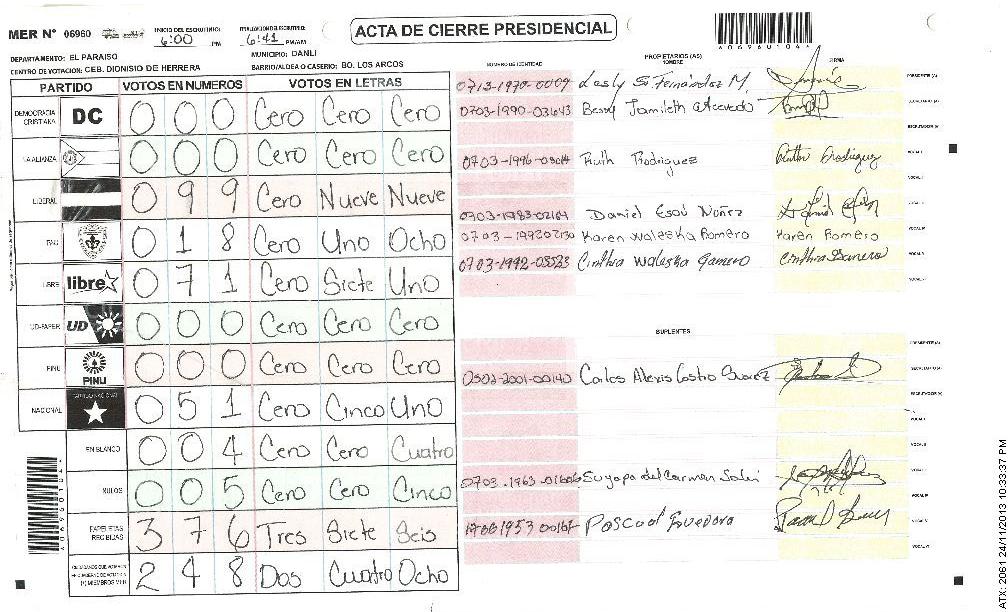 MER N° 06960
INICIO DEL ESCRUTINIO: 6:00 PM
FINALIZACION DEL ESCRUTINIO: 6:41 PM/AM
ACTA DE CIERRE PRESIDENCIAL
4069601044
DEPARTAMENTO: EL PARAISO
MUNICIPIO: DANLI
CENTRO DE VOTACION: CEB. DIONISIO DE HERRERA
BARRIO/ALDEA O CASERIO: BO. LOS ARCOS
PARTIDO VOTOS EN NUMEROS VOTOS EN LETRAS
DEMOCRACIA CRISTIANA DC 0 0 0 Cero Cero Cero
LA ALIANZA 0 0 0 Cero Cero Cero
LIBERAL 0 9 9 Cero Nueve Nueve
PAC 0 1 8 Cero Uno Ocho
LIBRE libre 0 7 1 Cero Siete Uno
UD-FAPER UD 0 0 0 Cero Cero Cero
PINU PINU 0 0 0 Cero Cero Cero
NACIONAL PARTIDO NACIONAL 0 5 1 Cero Cinco Uno
EN BLANCO 0 0 4 Cero Cero Cuatro
NULOS 0 0 5 Cero Cero Cinco
PAPELETAS RECIBIDAS 3 7 6 Tres Siete Seis
2 4 8 Dos Cuatro Ocho
NUMERO DE IDENTIDAD PROPIETARIOS (AS) NOMBRE FIRMA
0713-1970-0009 Lesly S. Fernández M. PRESIDENTE (A)
0703-1990-03643 Bessy Jamileth Acevedo SECRETARIO (A)
ESCRUTADOR (A)
Ruth Rodriguez Ruth Rodriguez VOCAL I
VOCAL II
0703-1983-02164 Daniel Esaú Nuñez
0703-199202130 Karen Waleska Romero Karen Romero VOCAL IV
0703-1992-03523 Cinthia Waleska Gamero Cinthia Gamero VOCAL V
SUPLENTES
PRESIDENTE (A)
0502-2001-00140 Carlos Alexis Castro Suarez SECRETARIO (A)
ESCRUTADOR (A)
VOCAL I
VOCAL II
0703-1963-01606 Suyapa del Carmen
VOCAL IV
Pascual Guevara VOCAL V
VOCAL VI
4069601044
ATX: 2061 24/11/2013 10:33:37 PM